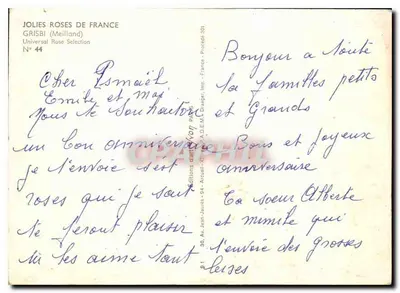 JOLIES ROSES DE FRANCE
GRISBI (Meilland)
Universal Rose Selection
N° 44
Cher Ismaël
Emile et moi
nous te souhaitons
un bon anniversaire
je t'envoie sept
roses qui je sait
te feront plaisir
tu les aime tant
Bonjour a toute
la familles petits
et Grands
Bons et Joyeux
anniversaire
ta soeur Alberte
et mimile qui
t'envoie des grosses
bises